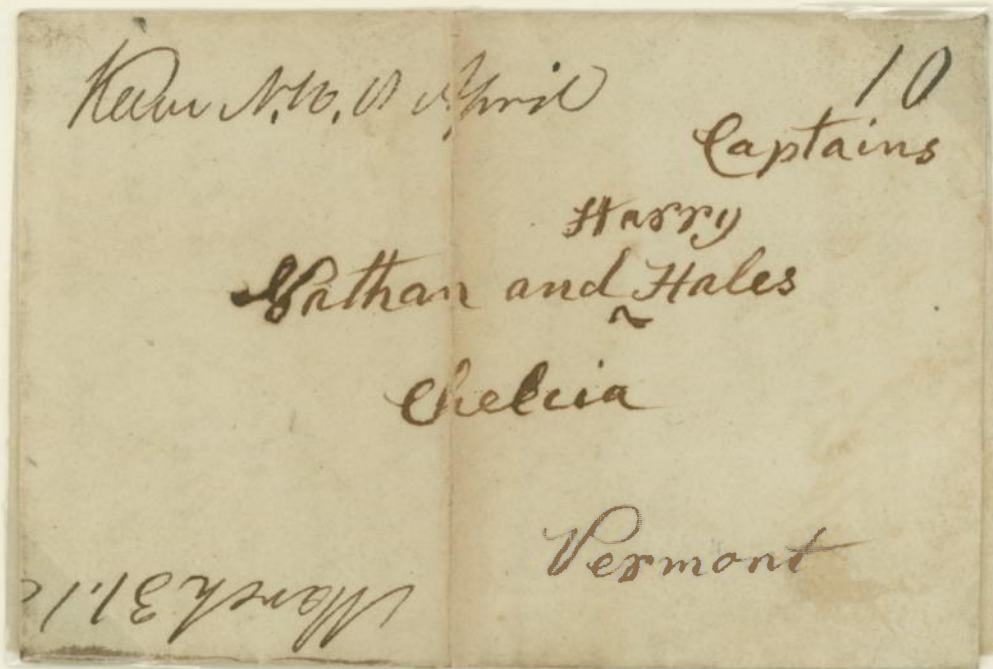 Keene N.H. 8 April
10
Captains
Harry
Nathan and Hales
Chelcia
Vermont
March 31. 1